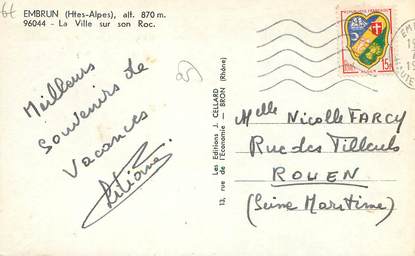 EMBRUN (Htes-Alpes), alt. 870 m.
96044 - La Ville sur son Roc.
Meilleurs
Souvenirs de
Vacances
Liliane
Les Editions J. CELLARD
13, rue de l'Economie BRON (Rhône)
15F
Melle Nicolle FARCY
Rue des Tilleuls
ROUEN
(Seine Maritime)